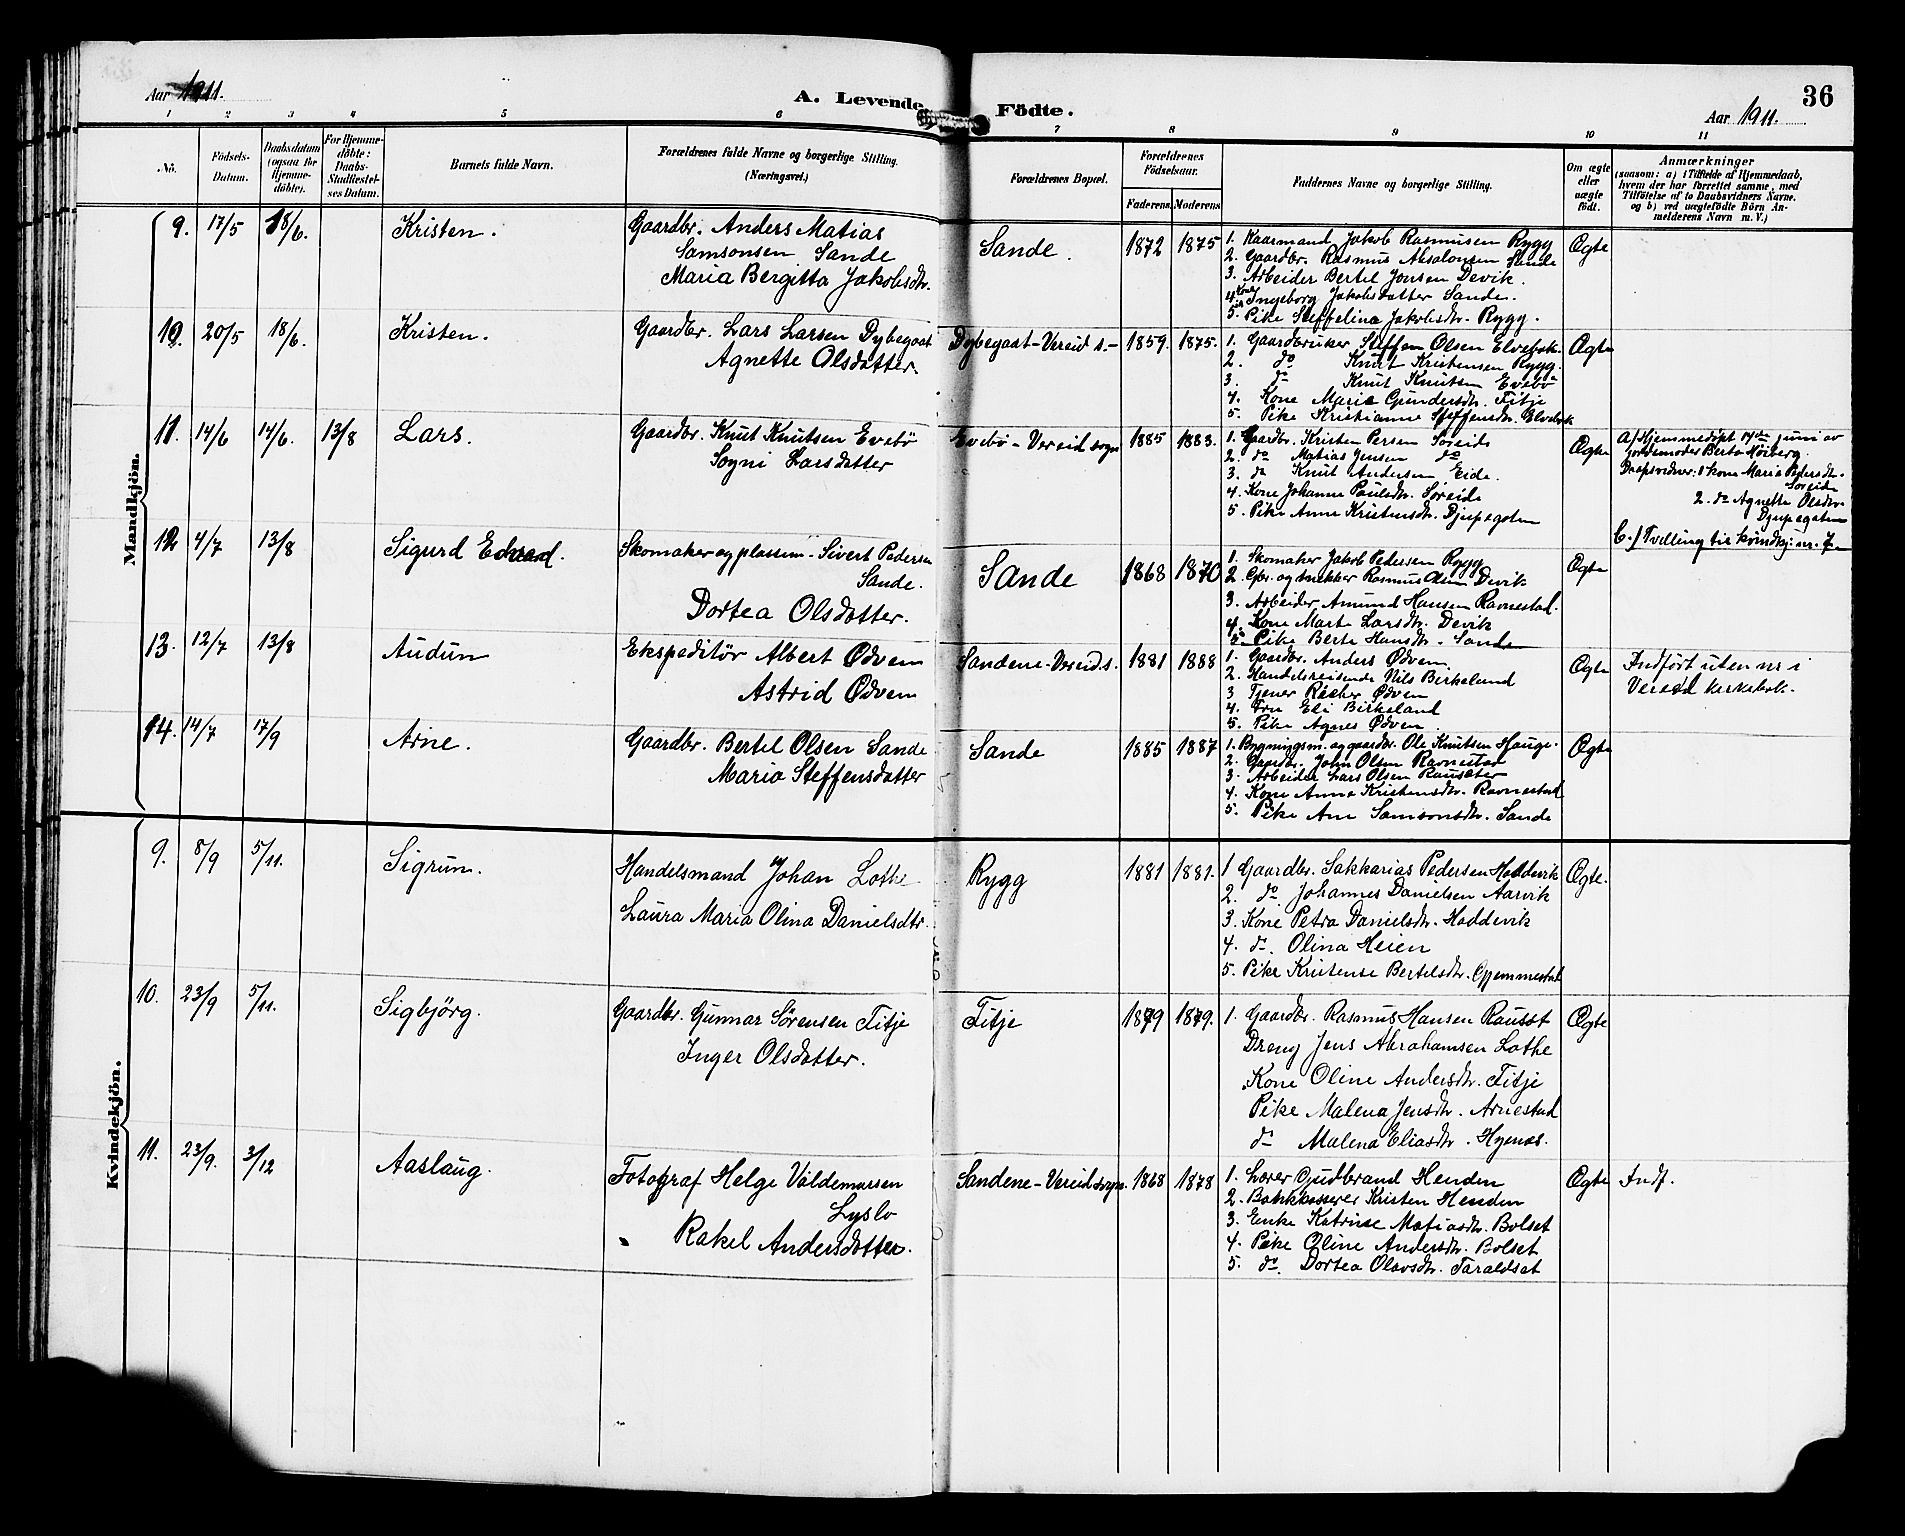 Aar 1911.
A. Levende
Födte.
36
Aar 1911.
1 2 3 4 5 6 7 8 9 10 11
No.
Födsels-
Datum.
Daabsdatum
(ogsaa for
Hjemme-
döbte).
For Hjemme-
döbte:
Daabs-
Stadfæstel-
ses Datum.
Barnets fulde Navn.
Forældrenes fulde Navne og borgerlige Stilling.
(Næringsvei.)
Forældrenes Bopæl.
Forældrenes
Födselsaar.
Faderens. Moderens
Faddernes Navne og borgerlige Stilling.
Om ægte
eller
uægte
födt.
Anmærkninger
(saasom: a) i Tilfælde af Hjemmedaab,
hvem der har forrettet samme, med
Tilföielse af to Daabsvidners Navne.
og b) ved uægtefödte Börn An-
melderens Navn m. V.)
Mandkjön.
9. 17/5 18/6. Kristen.
Gaardbr. Anders Matias
Samsonsen Sande
Maria Bergitta Jakobsdtr.
Sande. 1872 1875
1. Kaarmand Jakob Rasmusen Rygg
2. Gaardbr. Rasmus Absalonsen Sande
3. Arbeider Bertel Jonsen Devik.
4. Kone Ingeborg Jakobsdatter Sande.
5. Pike Steffelina Jakobsdtr. Rygg.
Ægte
10. 20/5 18/6. Kristen.
Gaardbr. Lars Larsen Dybegaat
Agnette Olsdatter.
Dybegaat-Vereid s.- 1859. 1875.
1. Gaardbruker Steffen Olsen Elvebak.
2. do Knut Kristensen Rygg.
3. do Knut Knutsen Evebö
4. Kone Marie Gundersdtr. Fitje
5. Pike Kristianne Steffensdtr. Elvebak
Ægte
11. 14/6 14/6. 13/8 Lars.
Gaardbr. Knut Knutsen Evebö
Sogni Larsdatter
Evebö - Vereid sogn 1885 1883.
1. Gaardbr. Kristen Persen Söreide
2. do Matias Jensen do
3. do Knut Andersen Eide.
4. Kone Johanne Paulsdtr. Söreide
5. Pike Anne Kristensdtr. Djupegoten
Ægte
a/ Hjemmedöpt 14de juni av
jordemoder Berta Höiberg.
Daapsvidner: 1 kone Maria Pedersdtr.
Söreide
2. do Agnette Olsdtr.
Djupegoten
b./ Tvilling til kvindkj. nr. 7
12 4/7 13/8 Sigurd Edvard.
Skomaker og plassm. Sivert Pedersen
Sande.
Dortea Olsdatter.
Sande 1868 1870
1. Skomaker Jakob Pedersen Rygg
2. Gbr. og snekker Rasmus Olsen Devik
3. Arbeider Amund Hansen Ravnestad.
4. Kone Marte Larsdtr. Devik
5. Pike Berte Hansdtr. Sande
Ægte
13. 12/7 13/8 Audun
Ekspeditör Albert Ødven
Astrid Ødven
Sandene-Vereid s. 1881 1888
1. Gaardbr. Anders Ødven
2. Handelsreisende Nils Birkeland
3 Tjener Ødven
4. Fru Eli Birkeland
5. Pike Agnes Ødven
Ægte
Indfört uten nr i
Vereid kirkebok.
14. 14/7 17/9 Arne.
Gaardbr. Bertel Olsen Sande
Maria Steffensdatter
Sande 1885 1887
1. Bygningsm. og gaardbr. Ole Knutsen Hauge.
2. Gaardbr. John Olsen Ravnestad
3. Arbeider Lars Olsen Rausæter
4. Kone Anna Kristensdtr. Ravnestad
5. Pike Ane Samsonsdtr. Sande
Ægte
Kvindekjön.
9. 8/9 5/11. Sigrun.
Handelsmand Johan Lothe
Laura Maria Olina Danielsdtr.
Rygg 1881 1881.
1 Gaardbr. Sakkarias Pedersen Haddevik
2. do Johannes Danielsen Aarvik
3. Kone Petra Danielsdtr. Haddevik
4. do. Olina Heien
5. Pike Kristense Bertelsdtr. Gjemmestad
Ægte.
10. 23/9 5/11. Sigbjörg.
Gaardbr. Gunnar Sörensen Fitje
Inger Olsdatter.
Fitje 1879 1879.
1. Gaardbr. Rasmus Hansen Rauset
Dreng Jens Abrahamsen Lothe
Kone Oline Andersdtr. Fitje
Pike Malena Jensdtr. Arnestad
do Malena Eliasdtr. Hyenes.
Ægte
11. 23/9. 3/12 Aaslaug.
Fotograf Helge Valdemarsen
Lyslo
Rakel Andersdatter.
Sandene-Vereid sogn. 1868 1878
1. Lærer Gudbrand Henden
2. Bankkasserer Kristen Henden
3. Enke Katrine Matiasdtr. Bolset
4. Pike Oline Andersdtr. Bolset
5. do. Dortea Olavsdtr. Taraldset
Ægte
Indf.